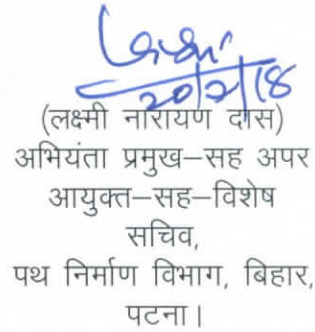 20/2/18
(लक्ष्मी नारायण दास)
अभियंता प्रमुख–सह अपर
आयुक्त–सह–विशेष
सचिव,
पथ निर्माण विभाग, बिहार,
पटना।